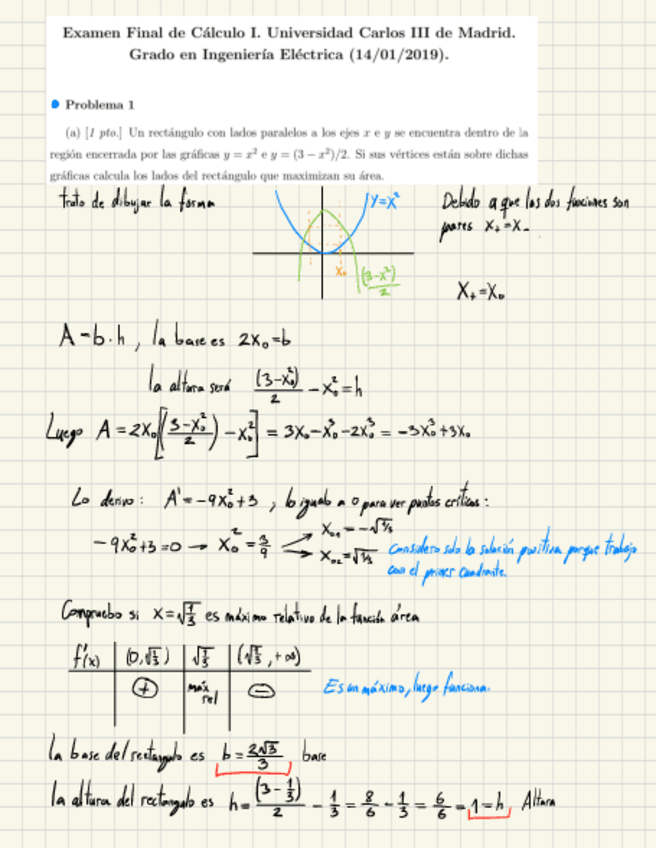 Examen Final de Cálculo I. Universidad Carlos III de Madrid.
Grado en Ingeniería Eléctrica (14/01/2019).
● Problema 1
(a) [1 pto.] Un rectángulo con lados paralelos a los ejes x e y se encuentra dentro de la
región encerrada por las gráficas y = x² e y = (3 − x²)/2. Si sus vértices están sobre dichas
gráficas calcula los lados del rectángulo que maximizan su área.
trato de dibujar la forma
y=x²
x₀
(3-x²)/2
Debido a que las dos funciones son
pares x₊=x₋
x₊=x₀
A=b·h, la base es 2x₀=b
la altura será (3-x₀²)/2 - x₀²=h
Luego A=2x₀[(3-x₀²/2)-x₀²] = 3x₀-x₀³-2x₀³ = -3x₀³+3x₀
Lo derivo: A'=-9x₀²+3, lo igualo a 0 para ver puntos críticos:
-9x₀²+3=0 → x₀²=3/9
x₀₁=-√1/3
x₀₂=√1/3
considero solo la solución positiva porque trabajo
con el primer cuadrante.
Compruebo si x=√1/3 es máximo relativo de la función área
f'(x) | (0,√1/3) | √1/3 | (√1/3,+∞)
⊕ | máx rel | ⊖
Es un máximo, luego funciona.
la base del rectangulo es b=2√3/3 base
la altura del rectangulo es h=(3-1/3)/2 - 1/3 = 8/6 - 1/3 = 6/6 = 1=h, Altura